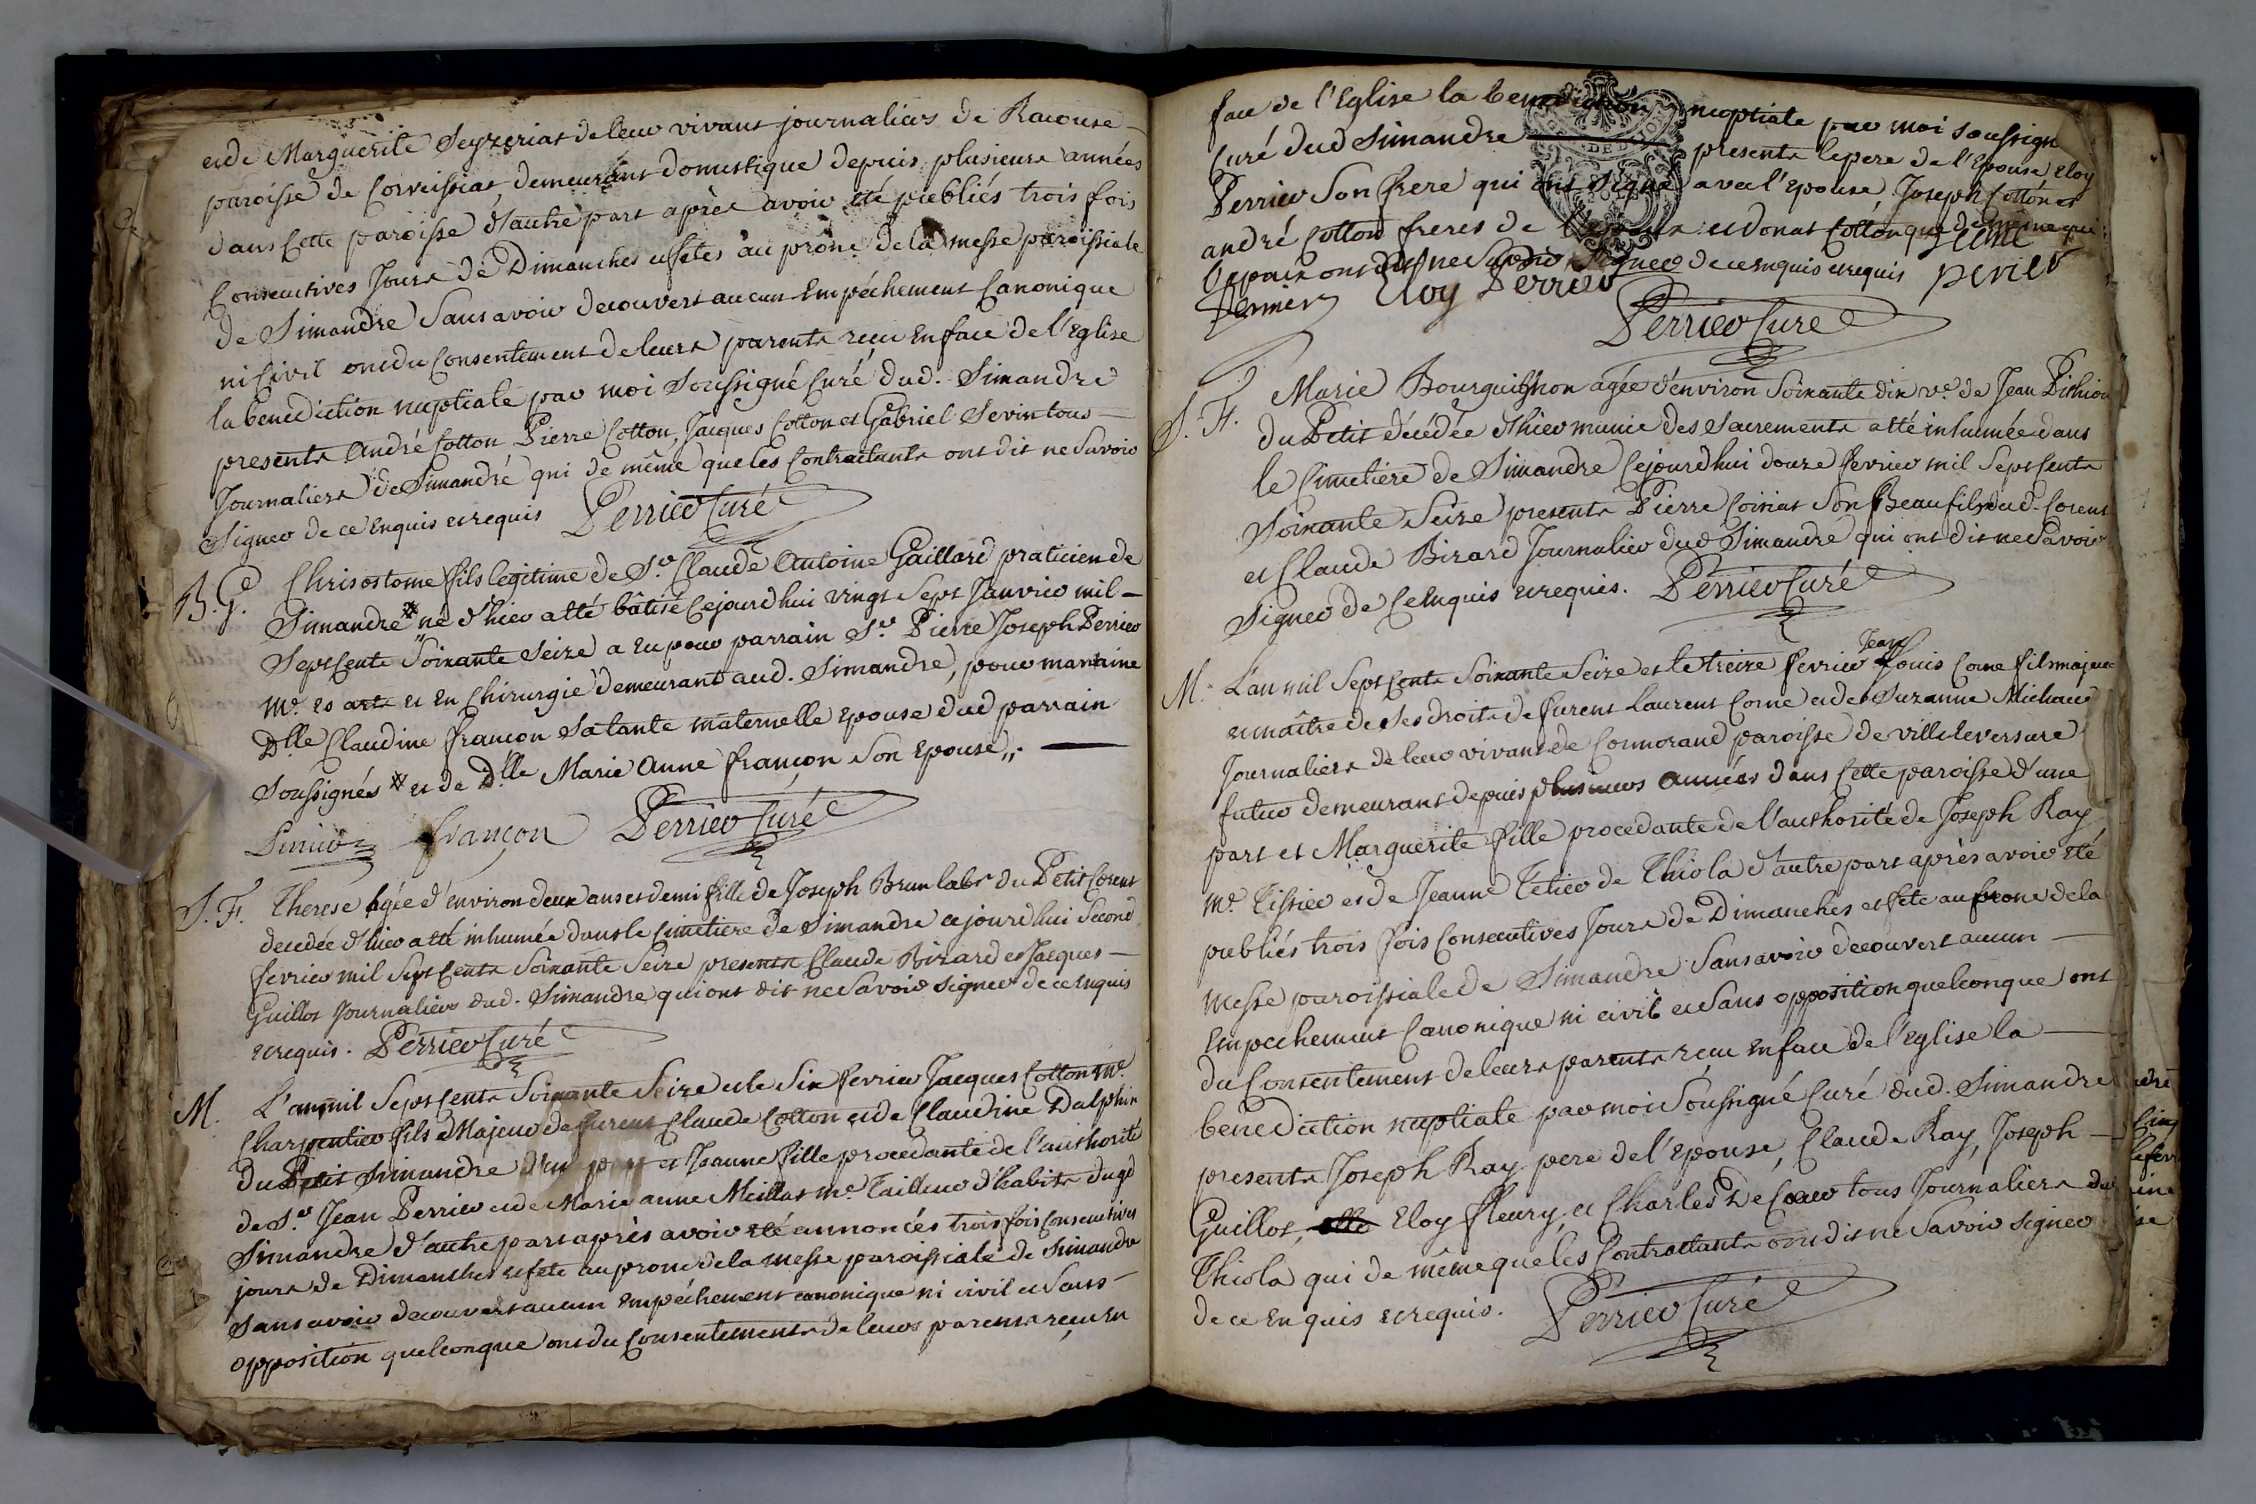 et de Marguerite Seyzeriat de leur vivant journaliers de Racouse
paroisse de Corveissiat demeurant domestique depuis plusieurs années
dans cette paroisse d'autre part après avoir été publiés trois fois
Consecutives Jours de Dimanches et fêtes au prône de la messe paroissiale
de Simandre Sans avoir decouvert aucun Empéchement Canonique
ni Civil ont du Consentement de leurs parents reçu En face de l'Eglise
la benediction nuptiale par moi Soussigné Curé dud. Simandre
presents André Cotton Pierre Cotton, Jacques Cotton et Gabriel Sevin tous
Journaliers de Simandre qui de même que les Contractants ont dit ne Savoir
Signer de ce Enquis et requis Perrier Curé
B.G. Chrisostome fils legitime de Sr. Claude Antoine Gaillard praticien de
Simandre * né d'hier a été bâtisé Cejourd'hui vingt Sept Janvier mil
Sept Cents Soixante Seize a Eu pour parrain Sr. Pierre Joseph Perrier
Me. Es arts et En Chirurgie demeurant aud. Simandre, pour marraine
Dlle Claudine françon Sa tante maternelle Epouse dud parrain
Soussignés * et de Dlle Marie Anne françon Son Epouse,,.
Perrier françon Perrier Curé
S.F. Therese agée d'environ deux ans et demi fille de Joseph Brun labr du Petit Corent
decedée d'hier a été inhumée dans le Cimetiere de Simandre cejourd'hui Second
fevrier mil Sept Cents Soixante Seize presents Claude Birard et Jacques
Guillot Journaliers dud. Simandre qui ont dit ne Savoir Signer de ce Enquis
et requis. Perrier Curé
M. L'an mil Sept Cents Soixante Seize et le Six fevrier Jacques Cotton Me.
Charpentier fils Majeur de furent Claude Cotton et de Claudine Dalphin
du Petit Simandre d'une part et Jeanne fille procedante de l'authorité
de Sr. Jean Perrier et de Marie anne Meillat Me. Tailleur d'habits dud
Simandre d'autre part après avoir été annoncés trois fois Consecutives
jours de Dimanches et fete au prone de la messe paroissiale de Simandre
Sans avoir decouvert aucun Empéchement canonique ni civil et Sans
opposition quelconque ont du Consentements de leurs parents reçu En
face de l'Eglise la benediction nuptiale par moi soussigné
Curé dud Simandre presents le pere de l'Epouse Eloy
Perrier Son frere qui ont signé avec l'Epouse, Joseph Cotton et
andré Cotton freres de et donat Cotton que de même qui
ont dit ne Savoir Signer de ce enquis et requis
Perrier Eloy Perrier perier
Perrier Curé
S.F. Marie Bourguignon agée d'environ Soixante dix ve. de Jean Pithiou
du Petit décédée d'hier munie des Sacrements a été inhumée dans
le Cimetière de Simandre Cejourd'hui douze fevrier mil Sept Cents
Soixante Seize presents Pierre Coiriat Son Beaufils dud. Corent
et Claude Birard Journalier dud Simandre qui ont dit ne Savoir
Signer de Ce Enquis et requis. Perrier Curé
M. L'an mil Sept Cents Soixante Seize et le treize fevrier Jean Louis Corne fils majeur
et maître de Ses droits de furent Laurent Corne et de Suzanne Michaud
Journaliers de leur vivant de Cormorand paroisse de villereversure
futur demeurant depuis plusieurs années dans Cette paroisse d'une
part et Marguerite fille procedante de l'authorité de Joseph Ray
Me. Tissier et de Jeanne Tetier de Thiola d'autre part après avoir été
publiés trois fois Consecutives Jours de Dimanches et fete au prone de la
Messe paroissiale de Simandre Sans avoir decouvert aucun
Empechement Canonique ni civil et Sans opposition quelconque ont
du Consentement de leurs parents reçu En face de l'eglise la
benediction nuptiale par moi Soussigné Curé dud. Simandre
presents Joseph Ray pere de l'Epouse, Claude Ray, Joseph
Guillot, Eloy fleury et Charles De Coeur tous Journaliers dud
Thiola qui de même que les Contractants ont dit ne Savoir Signer
de ce Enquis et requis. Perrier Curé